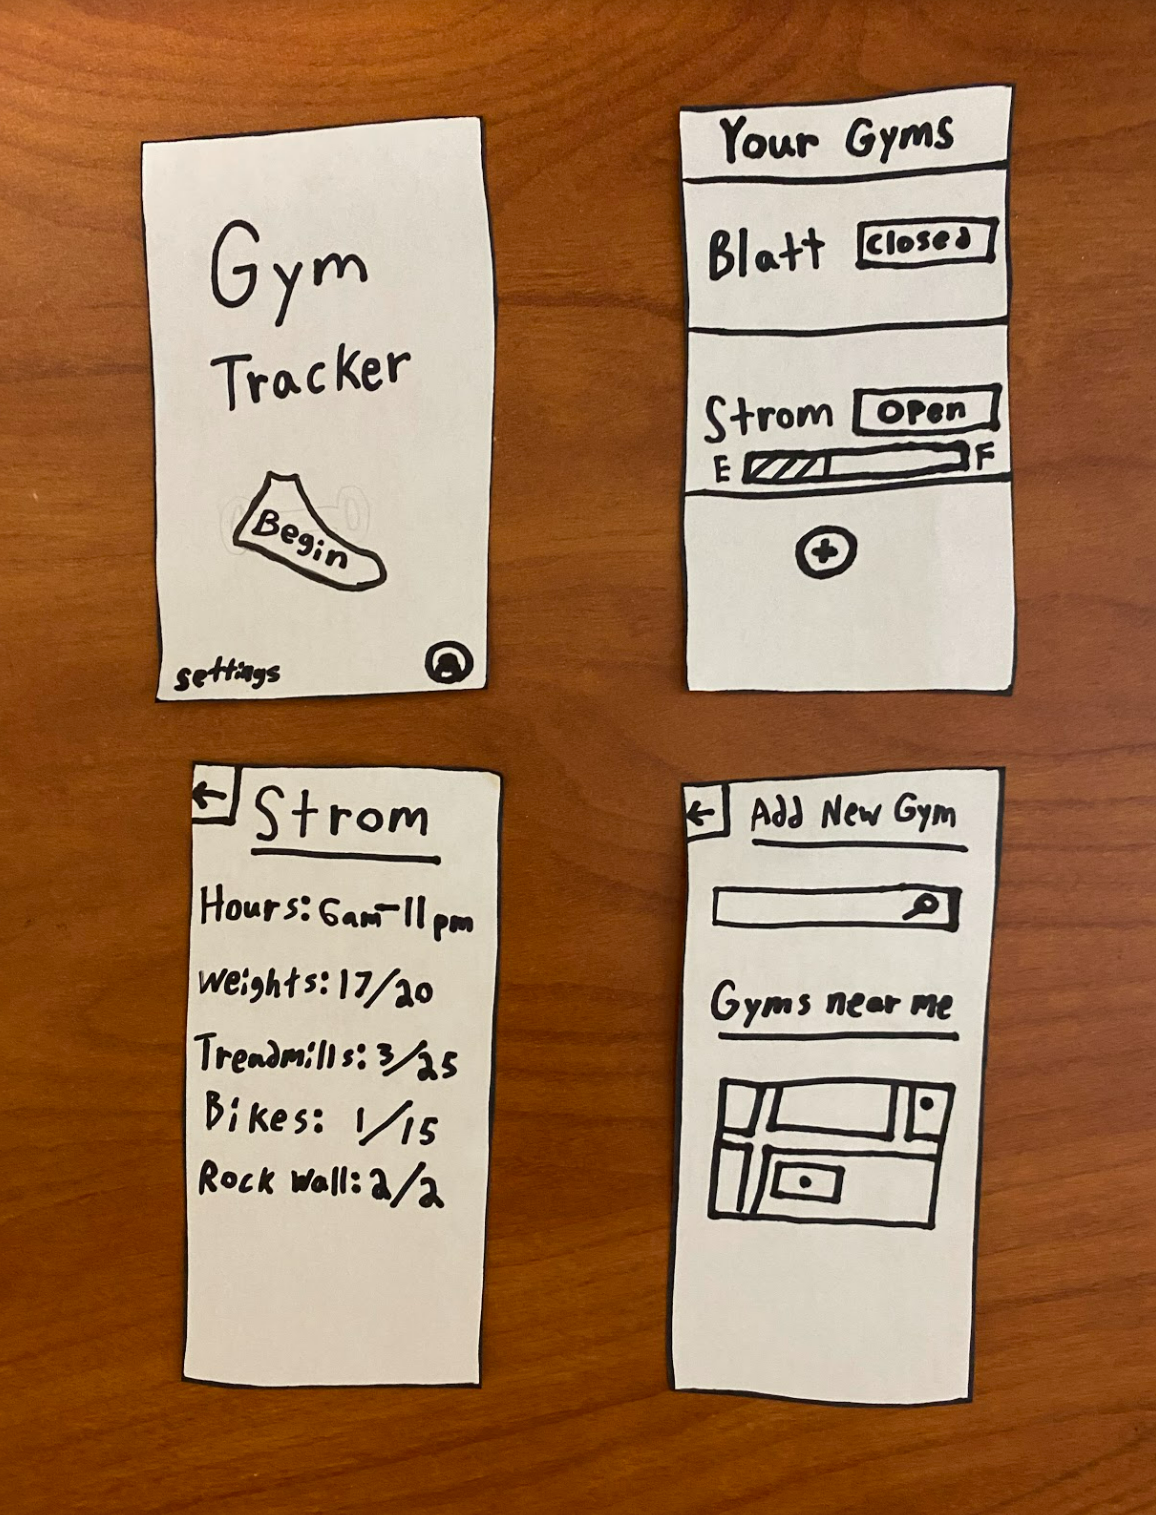 Gym
Tracker
Begin
settings
Your Gyms
Blatt closed
Strom open
E F
Strom
Hours: 6am-11pm
Weights: 17/20
Treadmills: 3/25
Bikes: 1/15
Rock Wall: 2/2
Add New Gym
Gyms near me